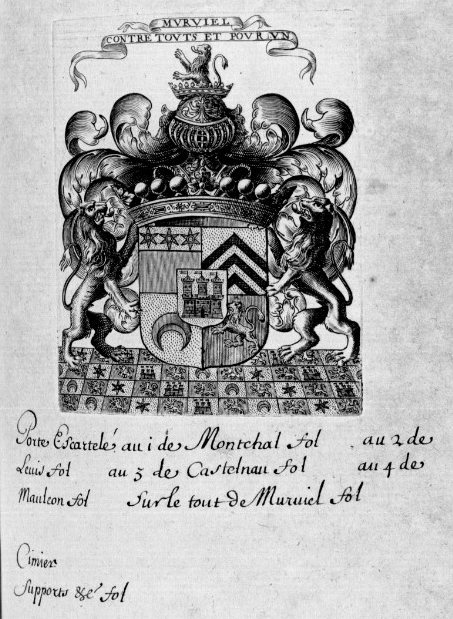 MVRVIEL
CONTRE TOVTS ET POVR VN
Porte Escartelé au i de Montchal fol au 2 de
Leuis fol au 3 de Castelnau fol au 4 de
Mauleon fol Sur le tout de Muruiel fol
Cimier
Supports &c fol